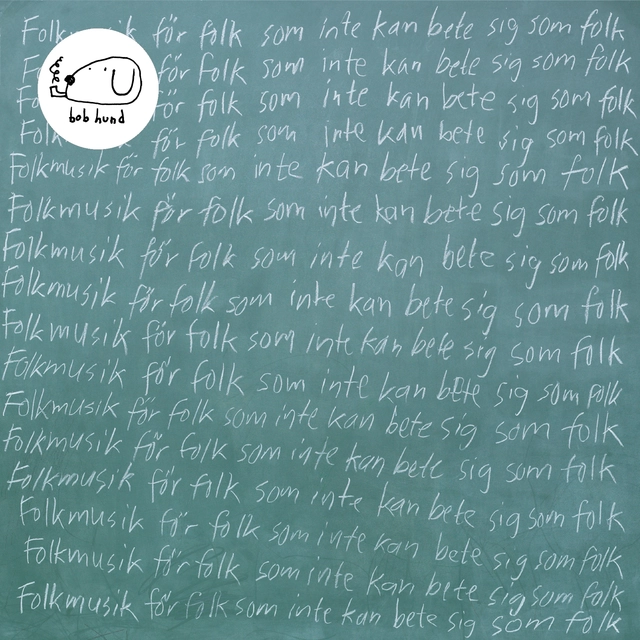 Folkmusik för folk som inte kan bete sig som folk
F för folk som inte kan bete sig som folk
Fo för folk som inte kan bete sig som folk
Folk för folk som inte kan bete sig som folk
bob hund
Folkmusik för folk som inte kan bete sig som folk
Folkmusik för folk som inte kan bete sig som folk
Folkmusik för folk som inte kan bete sig som folk
Folkmusik för folk som inte kan bete sig som folk
Folkmusik för folk som inte kan bete sig som folk
Folkmusik för folk som inte kan bete sig som folk
Folkmusik för folk som inte kan bete sig som folk
Folkmusik för folk som inte kan bete sig som folk
Folkmusik för folk som inte kan bete sig som folk
Folkmusik för folk som inte kan bete sig som folk
Folkmusik för folk som inte kan bete sig som folk
Folkmusik för folk som inte kan bete sig som folk